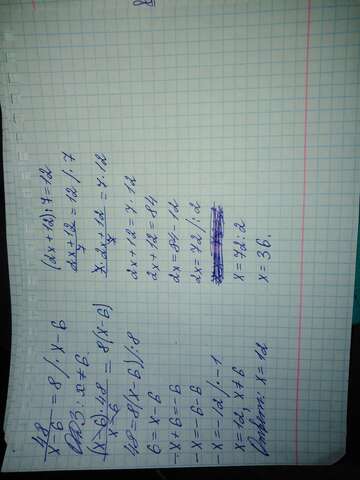 48/(x-6) = 8 /· x-6
ОДЗ: x≠6
(x-6)·48/(x-6) = 8(x-6)
48=8(x-6) /:8
6=x-6
-x+6=-6
-x=-6-6
-x=-12 /:-1
x=12, x≠6
Ответ: x=12
(2x+12):7=12
(2x+12)/7=12 /·7
7·(2x+12)/7=7·12
2x+12=7·12
2x+12=84
2x=84-12
2x=72 /:2
x=72:2
x=36.